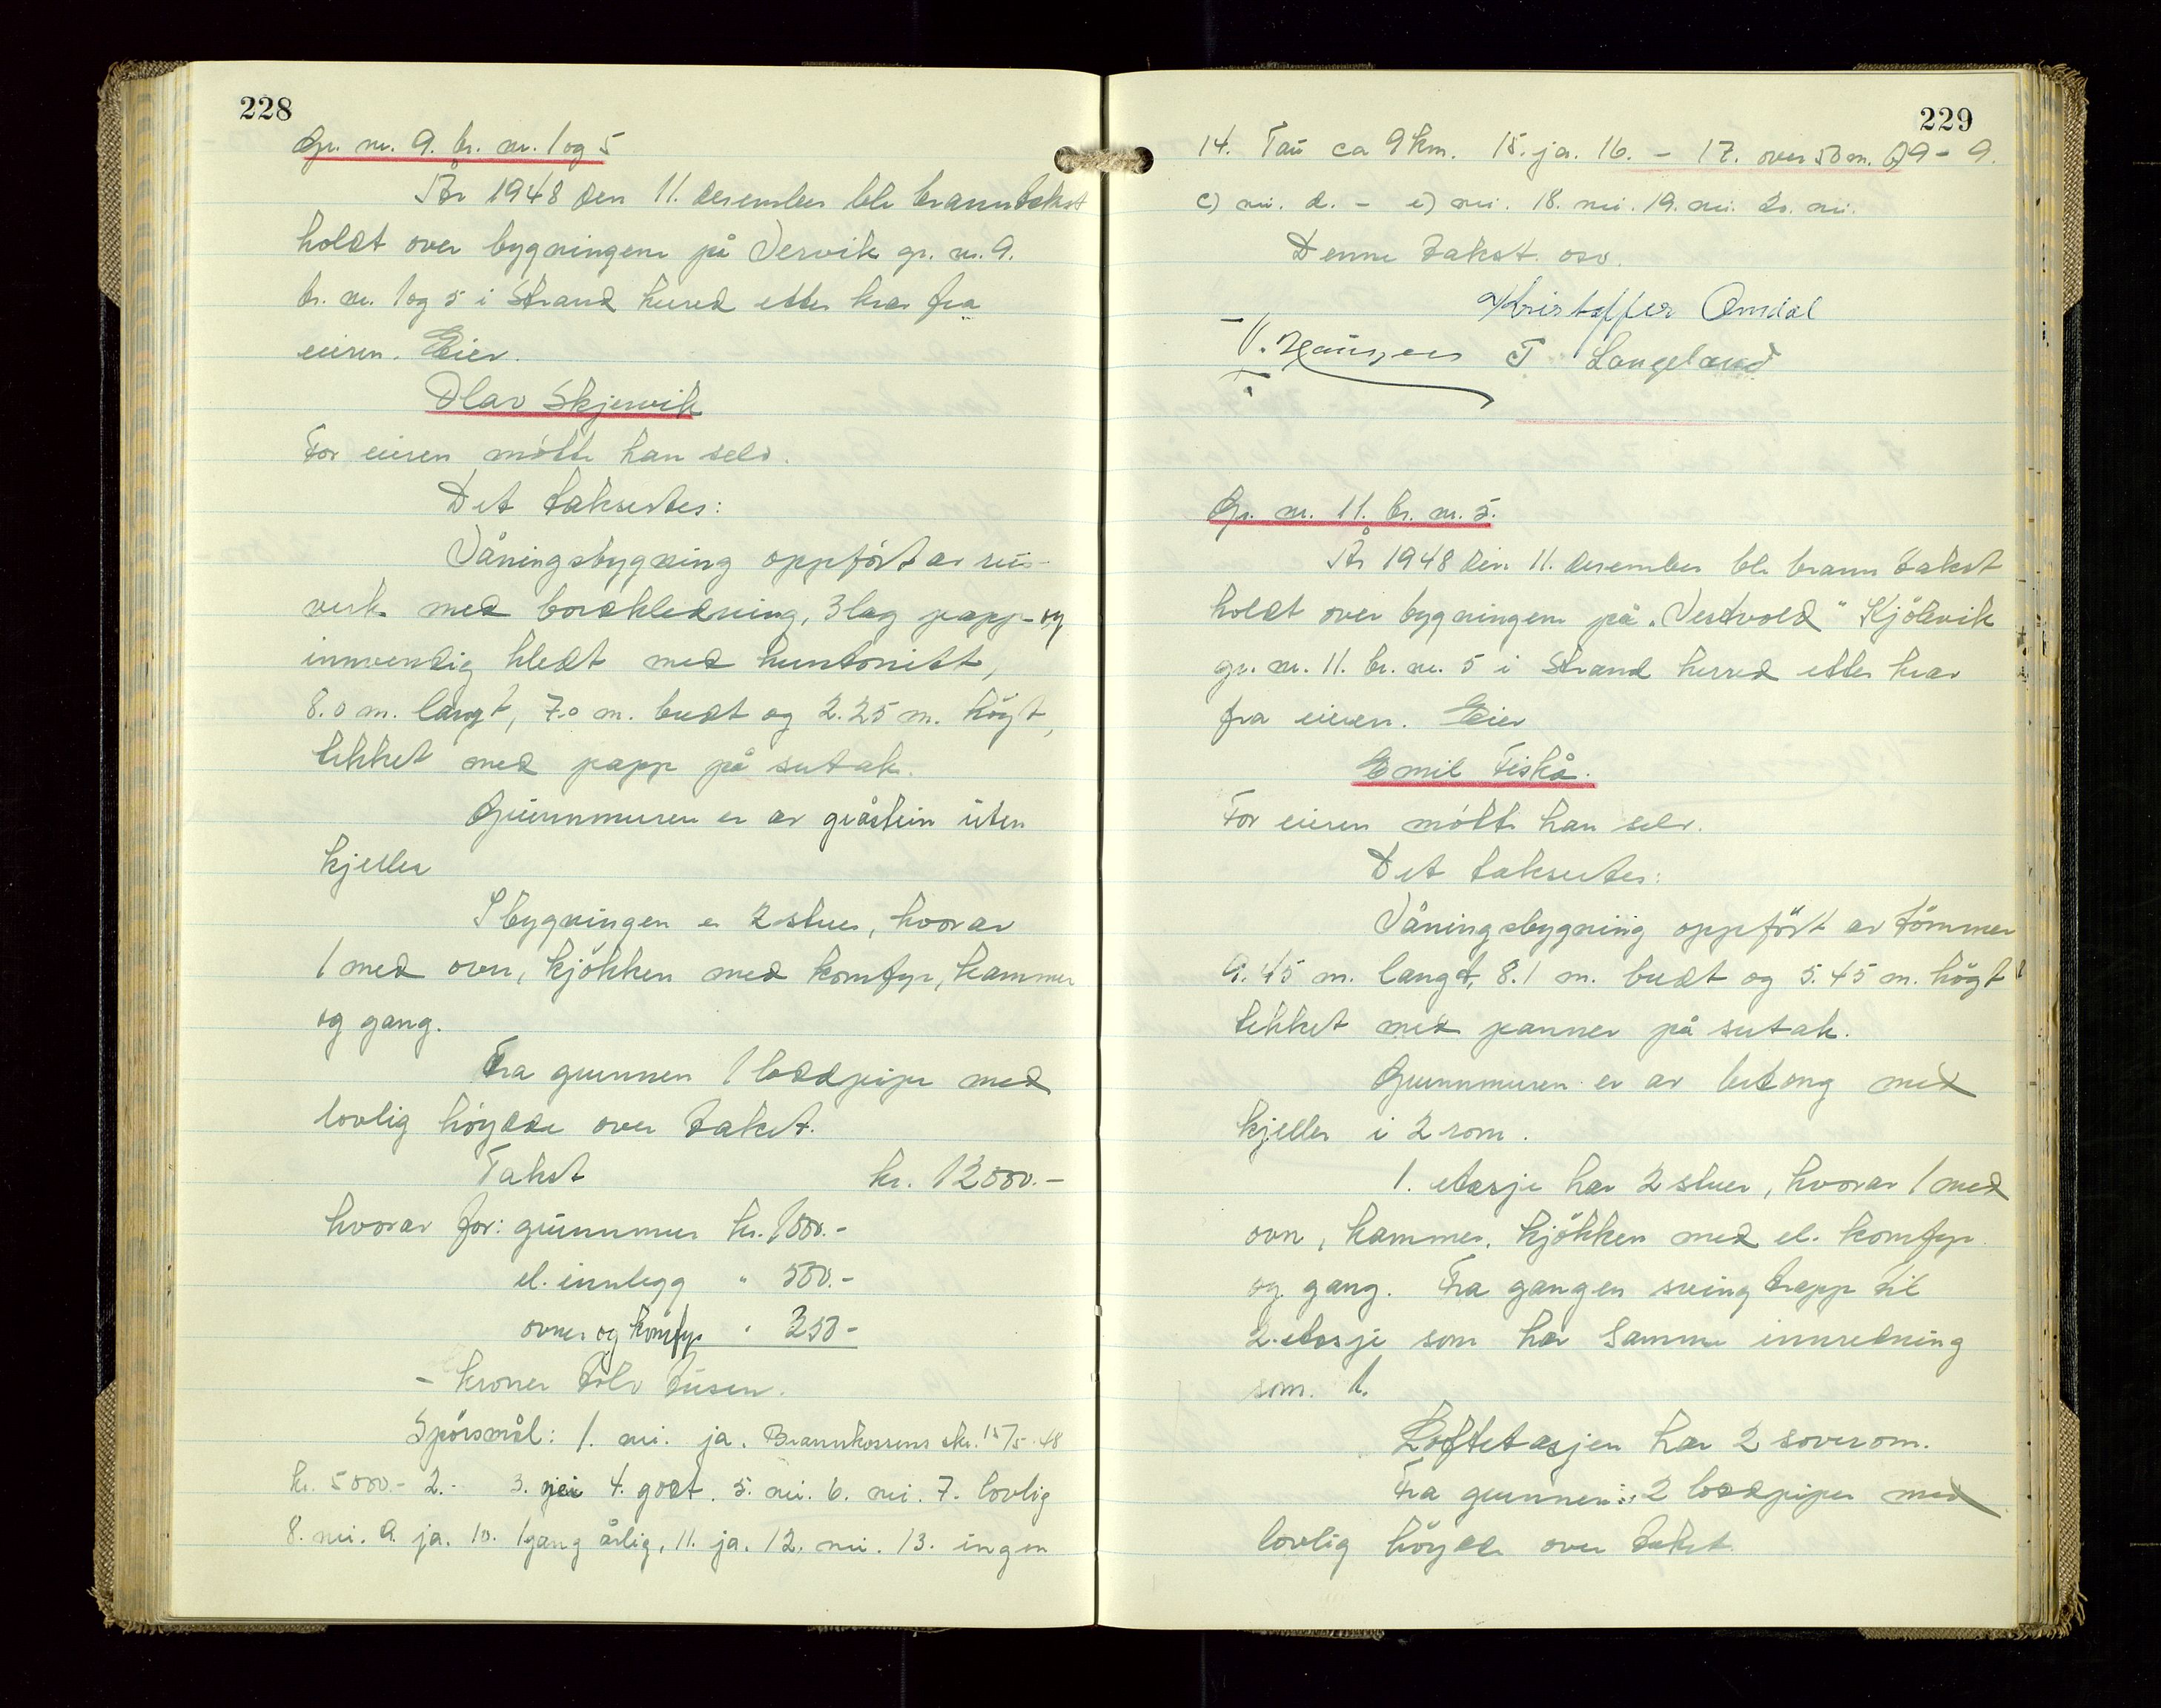 228
Gr. nr. 9. br. nr. 1 og 5
År 1948 den 11. desember ble branntakst
holdt over bygningene på Vervik gr. nr. 9.
br. nr. 1 og 5 i Strand herred etter krav fra
eieren. Eier.
Olav Skjervik
For eieren møtte han selv.
Det takseres:
Våningsbygning oppført av reis-
verk med bordkledning, 3 lag papp og
innvendig kledt med huntonitt,
8.0 m. langt, 7.0 m. bredt og 2.25 m. högt,
tekket med papp på sutak.
Grunnmuren er av gråstein uten
kjeller
I bygningen er 2 stuer, hvorav
1 med ovn, kjökken med komfyr, kammer
og gang.
Fra grunnen 1 loddpipe med
lovlig höyde over taket.
Takst kr. 12000.-
hvorav for: grunnmur kr. 1000.-
el. innlegg " 500.-
ovner og komfyr " 350-
- kroner tolv tusen.
Spörsmål: 1. nei. ja. Brannkassens skr. 15/5-48
kr. 5000.- 2. - 3. nei 4. godt. 5. nei. 6. nei. 7. lovlig
8. nei. 9. ja. 10. 1 gang årlig, 11. ja. 12. nei. 13. ingen
229
14. Tau ca 9 km. 15. ja. 16. - 17. over 50 m. 9 - 9.
c) nei. d. - e) nei. 18. nei. 19. nei. 20. nei.
Denne takst. osv.
Kristoffer Omdal
T. Langeland
Gr. nr. 11. br. nr. 5.
År 1948 den 11. desember ble branntakst
holdt over bygningene på "Vestvold" Kjölevik
gr. nr. 11. br. nr. 5 i Strand herred etter krav
fra eieren. Eier
Emil Fiskå.
For eieren møtte han selv.
Det takseres:
Våningsbygning oppfört av tömmer
9.45 m. langt, 8.1 m. bredt og 5.45 m. högt
tekket med panner på sutak.
Grunnmuren er av betong med
kjeller i 2 rom.
1. etasje har 2 stuer, hvorav 1 med
ovn, kammer, kjökken med el. komfyr
og gang. Fra gangen svingtrapp til
2. etasje som har samme innredning
som 1.
Loftetasjen har 2 soverom.
Fra grunnen: 2 loddpiper med
lovlig höyde over taket.